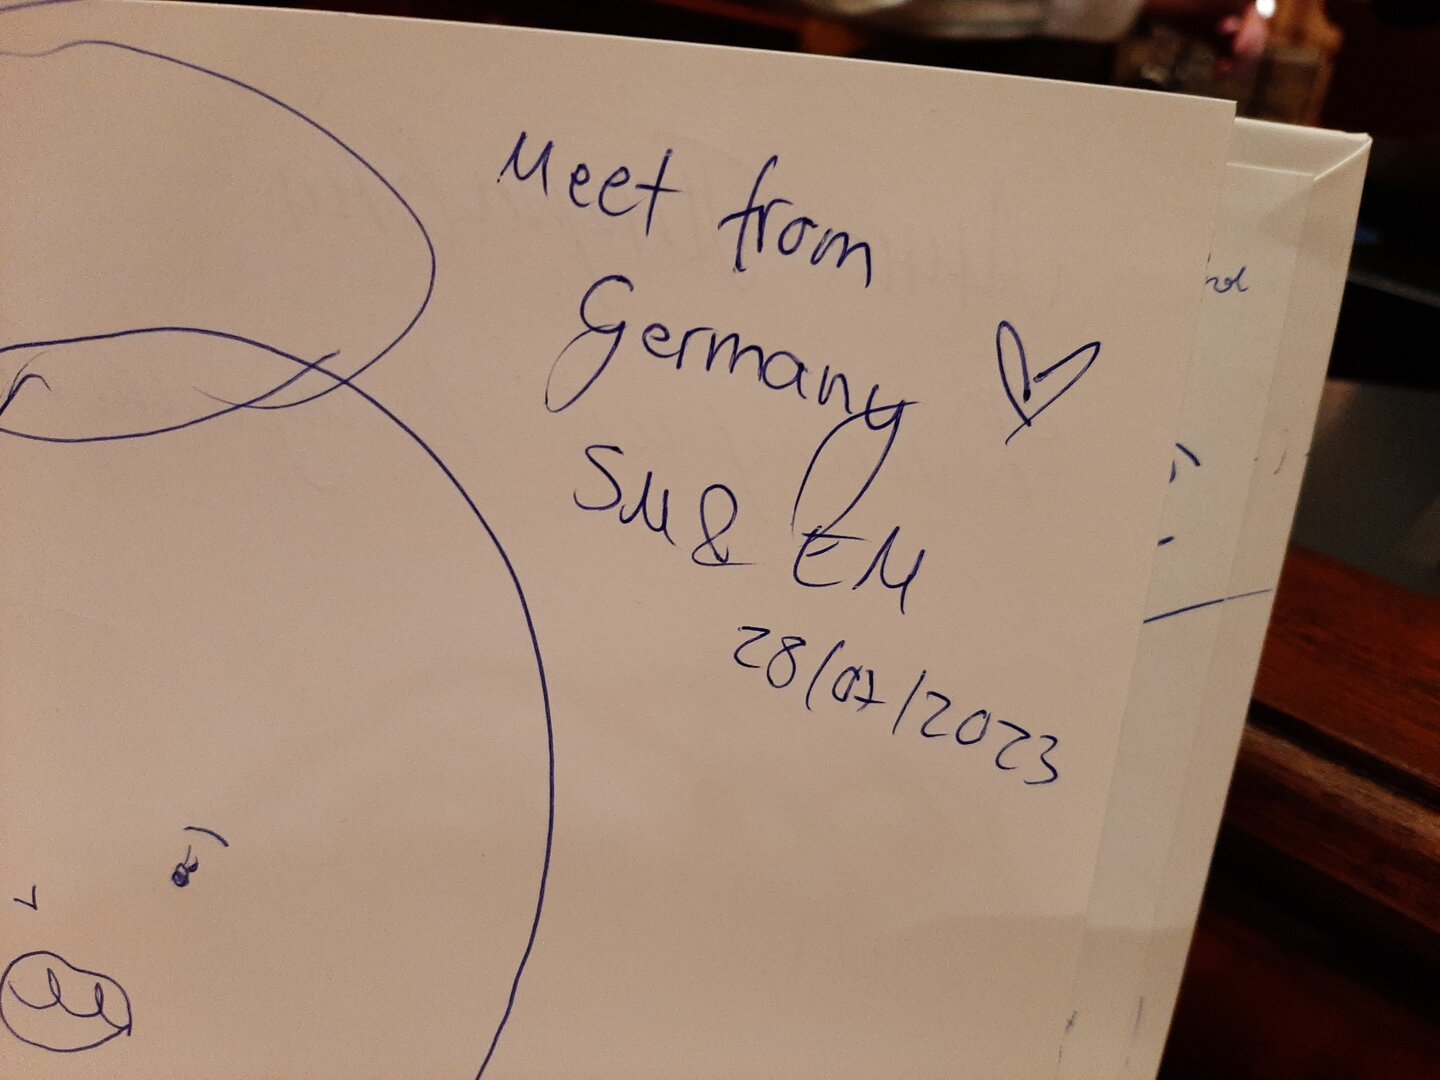 Meet from
Germany
SM & EM
28/07/2023